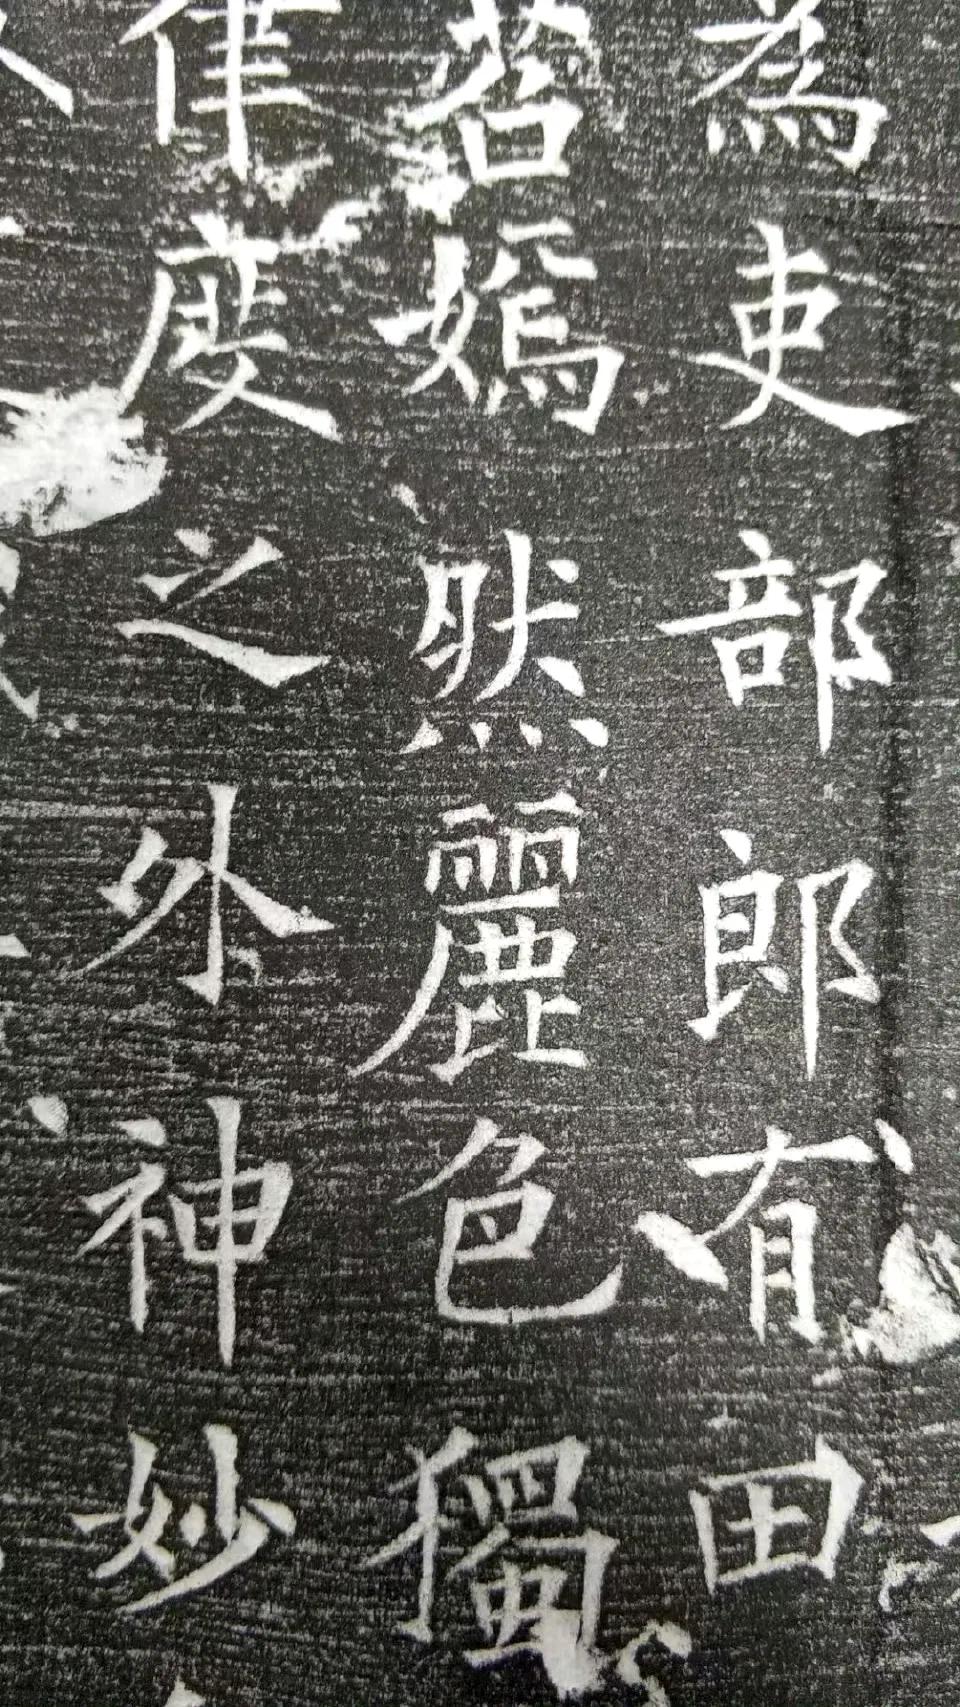 為吏部郎有田
若嫣然麗色獨
律度之外神妙